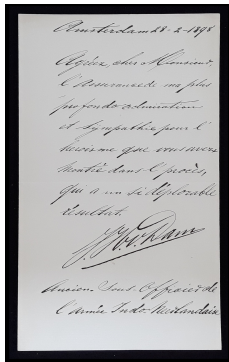 Amsterdam 28-2-1898
Agréez, cher Monsieur,
l'assurance de ma plus
profonde admiration
et sympathie pour l'
héroisme que vous avez
montré dans le procès,
qui a un si déplorable
résultat.
Dam
Ancien Sous Officier de
l'Armée Indo-Néerlandaise